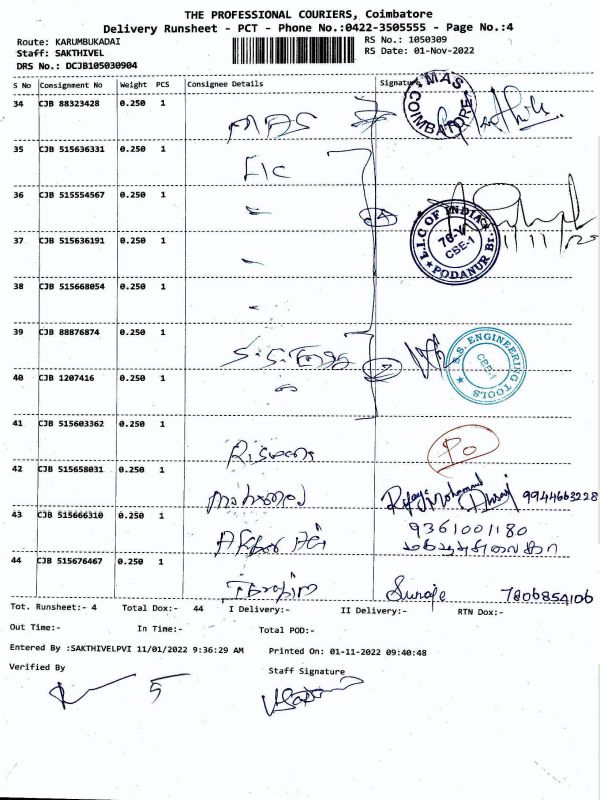 THE PROFESSIONAL COURIERS, Coimbatore
Delivery Runsheet - PCT - Phone No.:0422-3505555 - Page No.:4
Route: KARUMBUKADAI RS No.: 1050309
Staff: SAKTHIVEL RS Date: 01-Nov-2022
DRS No.: DCJB105030904
S No Consignment No Weight PCS Consignee Details Signature
34 CJB 88323428 0.250 1 MAS MAS COIMBATORE
35 CJB 515636331 0.250 1 LIC
36 CJB 515554567 0.250 1 4
37 CJB 515636191 0.250 1 L.I.C OF INDIA 76-V CBE-1 PODANUR Br.
38 CJB 515668054 0.250 1
39 CJB 88876874 0.250 1 S.S. Engg S.S. ENGINEERING TOOLS CBE-1
40 CJB 1207416 0.250 1 2
41 CJB 515603362 0.250 1 PO
42 CJB 515658031 0.250 1 Mohamed 9944663228
43 CJB 515666310 0.250 1 Akbar Ali 9361001180
44 CJB 515676467 0.250 1 Ibrahim 7806854106
Tot. Runsheet:- 4 Total Dox:- 44 I Delivery:- II Delivery:- RTN Dox:-
Out Time:- In Time:- Total POD:-
Entered By :SAKTHIVELPVI 11/01/2022 9:36:29 AM Printed On: 01-11-2022 09:40:48
Verified By Staff Signature
5